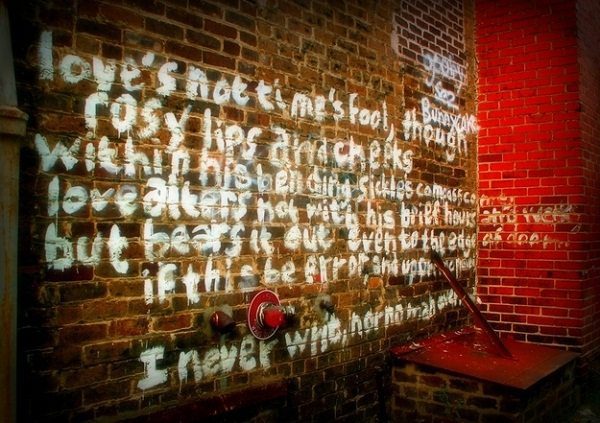 love's not time's fool, though
rosy lips and cheeks
within his bending sickles compass
love alters not with his brief hours and
but bears it out even to the edge of doom...
if this be error and upon
I never writ, nor no